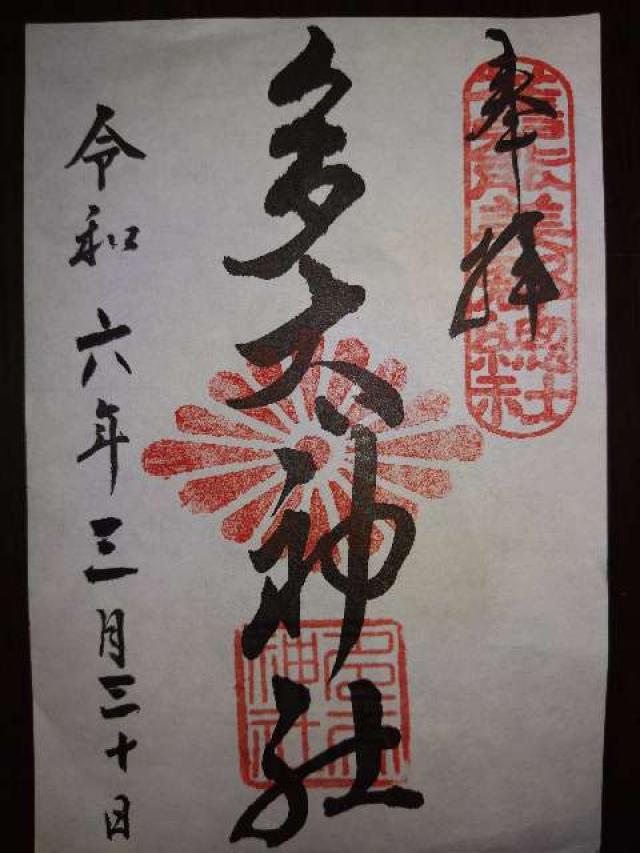 奉拝
多太神社
多太神社
令和六年三月三十日